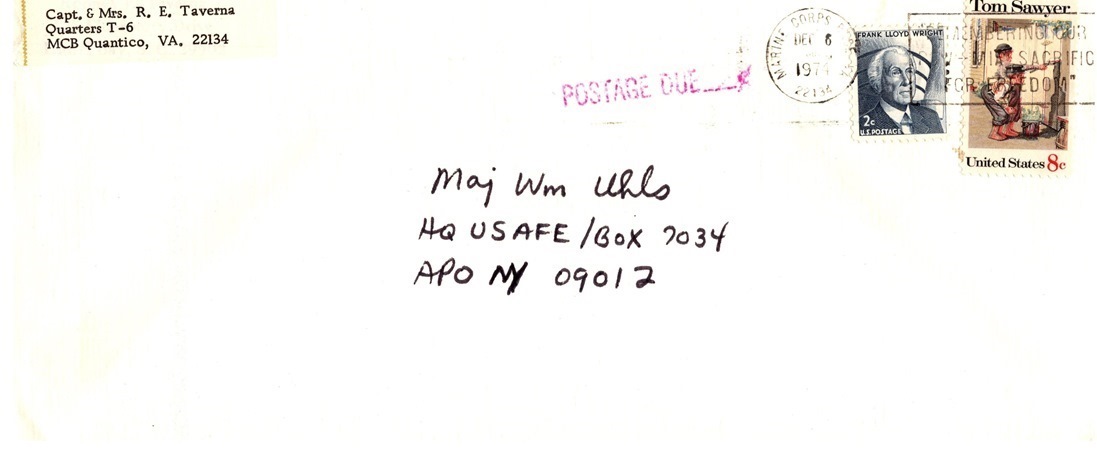 Capt. & Mrs. R. E. Taverna
Quarters T-6
MCB Quantico, VA. 22134
POSTAGE DUE
MARINE CORPS
DEC 6
1974
22134
FRANK LLOYD WRIGHT
2c
U.S. POSTAGE
Tom Sawyer
United States 8c
REMEMBERING OUR
MIA SACRIFIC
FOR FREEDOM"
Maj Wm Uhls
HQ USAFE/BOX 7034
APO NY 09012